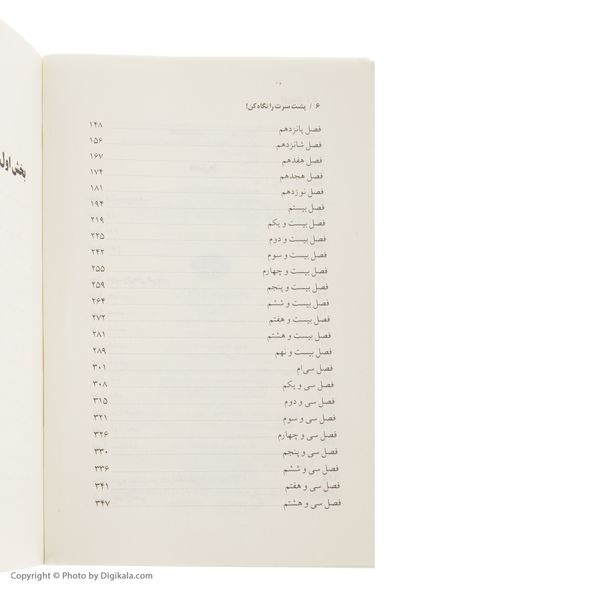 ۶ / پشت سرت را نگاه کن!
فصل پانزدهم ۱۴۸
فصل شانزدهم ۱۵۶
فصل هفدهم ۱۶۷
فصل هجدهم ۱۷۴
فصل نوزدهم ۱۸۱
فصل بیستم ۱۹۴
فصل بیست و یکم ۲۱۹
فصل بیست و دوم ۲۲۵
فصل بیست و سوم ۲۴۲
فصل بیست و چهارم ۲۵۵
فصل بیست و پنجم ۲۵۹
فصل بیست و ششم ۲۶۴
فصل بیست و هفتم ۲۷۲
فصل بیست و هشتم ۲۸۱
فصل بیست و نهم ۲۸۹
فصل سی‌ام ۳۰۱
فصل سی و یکم ۳۰۸
فصل سی و دوم ۳۱۵
فصل سی و سوم ۳۲۱
فصل سی و چهارم ۳۲۶
فصل سی و پنجم ۳۳۰
فصل سی و ششم ۳۳۶
فصل سی و هفتم ۳۴۱
فصل سی و هشتم ۳۴۷
بخش اول
Copyright © Photo by Digikala.com